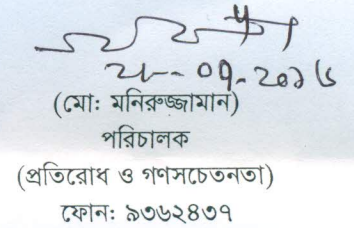 (মো: মনিরুজ্জামান)
পরিচালক
(প্রতিরোধ ও গণসচেতনতা)
ফোন: ৯৩৬২৪৩৭